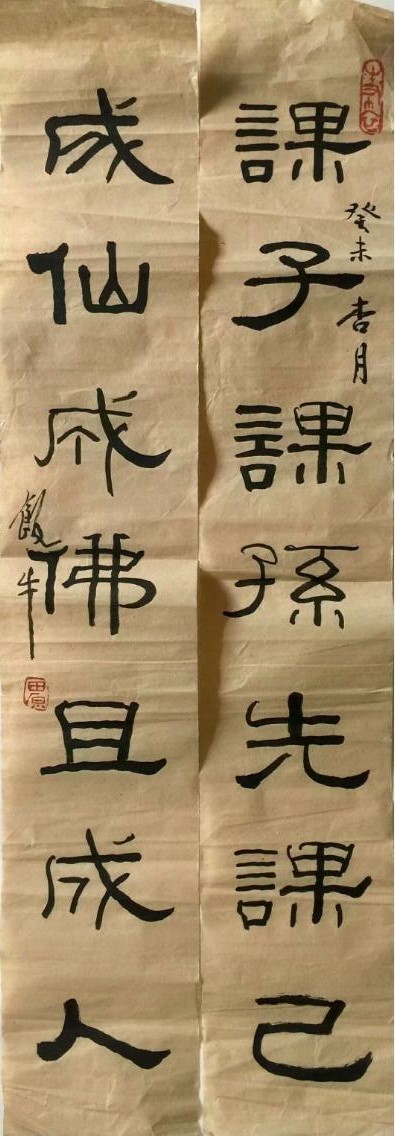 課子課孫先課己
癸未杏月
成仙成佛且成人